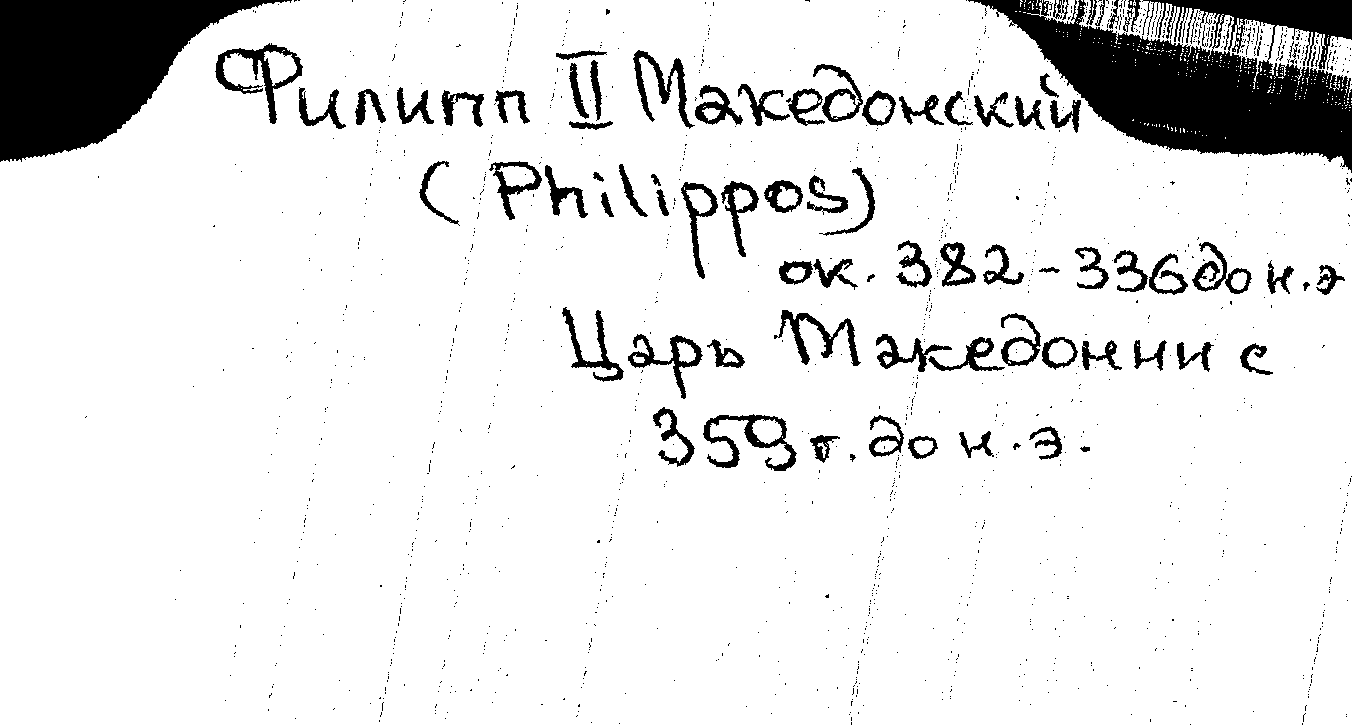 Филипп II Македонский
(Philippos)
ок. 382-336 до н.э
Царь Македонии с
359 г. до н.э.